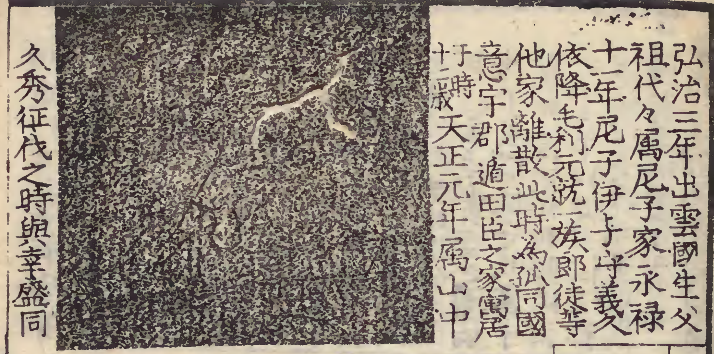 弘治三年出雲國生父
祖代々属尼子家永禄
十一年尼子伊予守義久
依降毛利元就一族郎徒等
他家離散此時為孤同國
意宇郡遁田臣之家寓居
于時十二歳天正元年属山中
久秀征伐之時與幸盛同